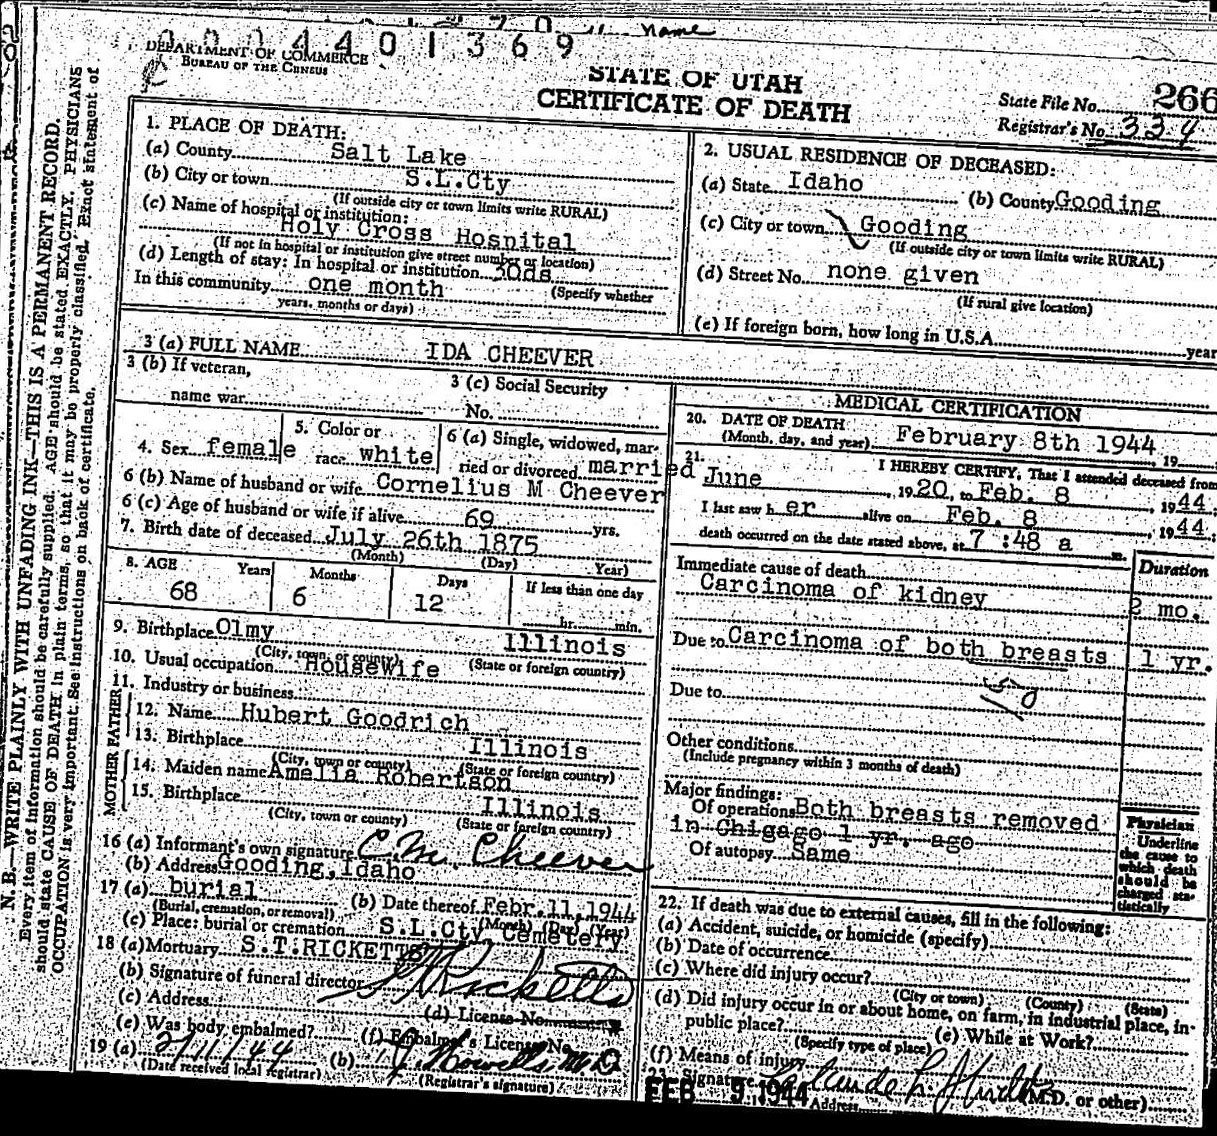 001401369
name
DEPARTMENT OF COMMERCE
BUREAU OF THE CENSUS
STATE OF UTAH
CERTIFICATE OF DEATH
State File No. 266
Registrar's No. 334
N. B.—WRITE PLAINLY WITH UNFADING INK—THIS IS A PERMANENT RECORD.
Every item of information should be carefully supplied. AGE should be stated EXACTLY. PHYSICIANS
should state CAUSE OF DEATH in plain terms, so that it may be properly classified. Exact statement of
OCCUPATION is very important. See instructions on back of certificate.
1. PLACE OF DEATH:
(a) County Salt Lake
(b) City or town S.L.Cty
(If outside city or town limits write RURAL)
(c) Name of hospital or institution:
Holy Cross Hospital
(If not in hospital or institution give street number or location)
(d) Length of stay: In hospital or institution 30ds
(Specify whether
In this community one month
years, months or days)
2. USUAL RESIDENCE OF DECEASED:
(a) State Idaho (b) County Gooding
(c) City or town Gooding
(If outside city or town limits write RURAL)
(d) Street No. none given
(If rural give location)
(e) If foreign born, how long in U.S.A. year
3 (a) FULL NAME IDA CHEEVER
3 (b) If veteran,
name war
3 (c) Social Security
No.
4. Sex female 5. Color or race white 6 (a) Single, widowed, married or divorced married
6 (b) Name of husband or wife Cornelius M Cheever
6 (c) Age of husband or wife if alive 69 yrs.
7. Birth date of deceased July 26th 1875
(Month) (Day) Year)
8. AGE Years Months Days If less than one day
68 6 12 hr. min.
9. Birthplace Olmy Illinois
(City, town, or county) (State or foreign country)
10. Usual occupation HouseWife
11. Industry or business
FATHER
12. Name Hubert Goodrich
13. Birthplace Illinois
(City, town or county) (State or foreign country)
MOTHER
14. Maiden name Amelia Robertson
15. Birthplace Illinois
(City, town or county) (State or foreign country)
16 (a) Informant's own signature C.M. Cheever
(b) Address Gooding, Idaho
17 (a) burial (b) Date thereof Febr.11,1944
(Burial, cremation, or removal) (Month) (Day) (Year)
(c) Place: burial or cremation S.L.Cty Cemetery
18 (a) Mortuary S.T.RICKETTS
(b) Signature of funeral director Ricketts
(c) Address (d) License No.
(e) Was body embalmed? (f) Embalmer's License No.
19 (a) 2/11/44 (b) Howells, M.D
(Date received local registrar) (Registrar's signature)
MEDICAL CERTIFICATION
20. DATE OF DEATH
(Month, day, and year) February 8th 1944, 19
21. I HEREBY CERTIFY, That I attended deceased from
June, 1920, to Feb. 8, 1944.
I last saw h er alive on Feb. 8, 1944.
death occurred on the date stated above, at 7 :48 a m.
Immediate cause of death Duration
Carcinoma of kidney 2 mo.
Due to Carcinoma of both breasts 1 yr.
50
Due to
Other conditions
(Include pregnancy within 3 months of death)
Major findings:
Of operations Both breasts removed
in Chigago 1 yr. ago
Of autopsy Same
Physician
Underline
the cause to
which death
should be
charged sta-
tistically
22. If death was due to external causes, fill in the following:
(a) Accident, suicide, or homicide (specify)
(b) Date of occurrence
(c) Where did injury occur?
(City or town) (County) (State)
(d) Did injury occur in or about home, on farm, in industrial place, in-
public place? (e) While at Work?
(Specify type of place)
(f) Means of injury
23. Signature (M.D. or other)
FEB 9 1944
Address